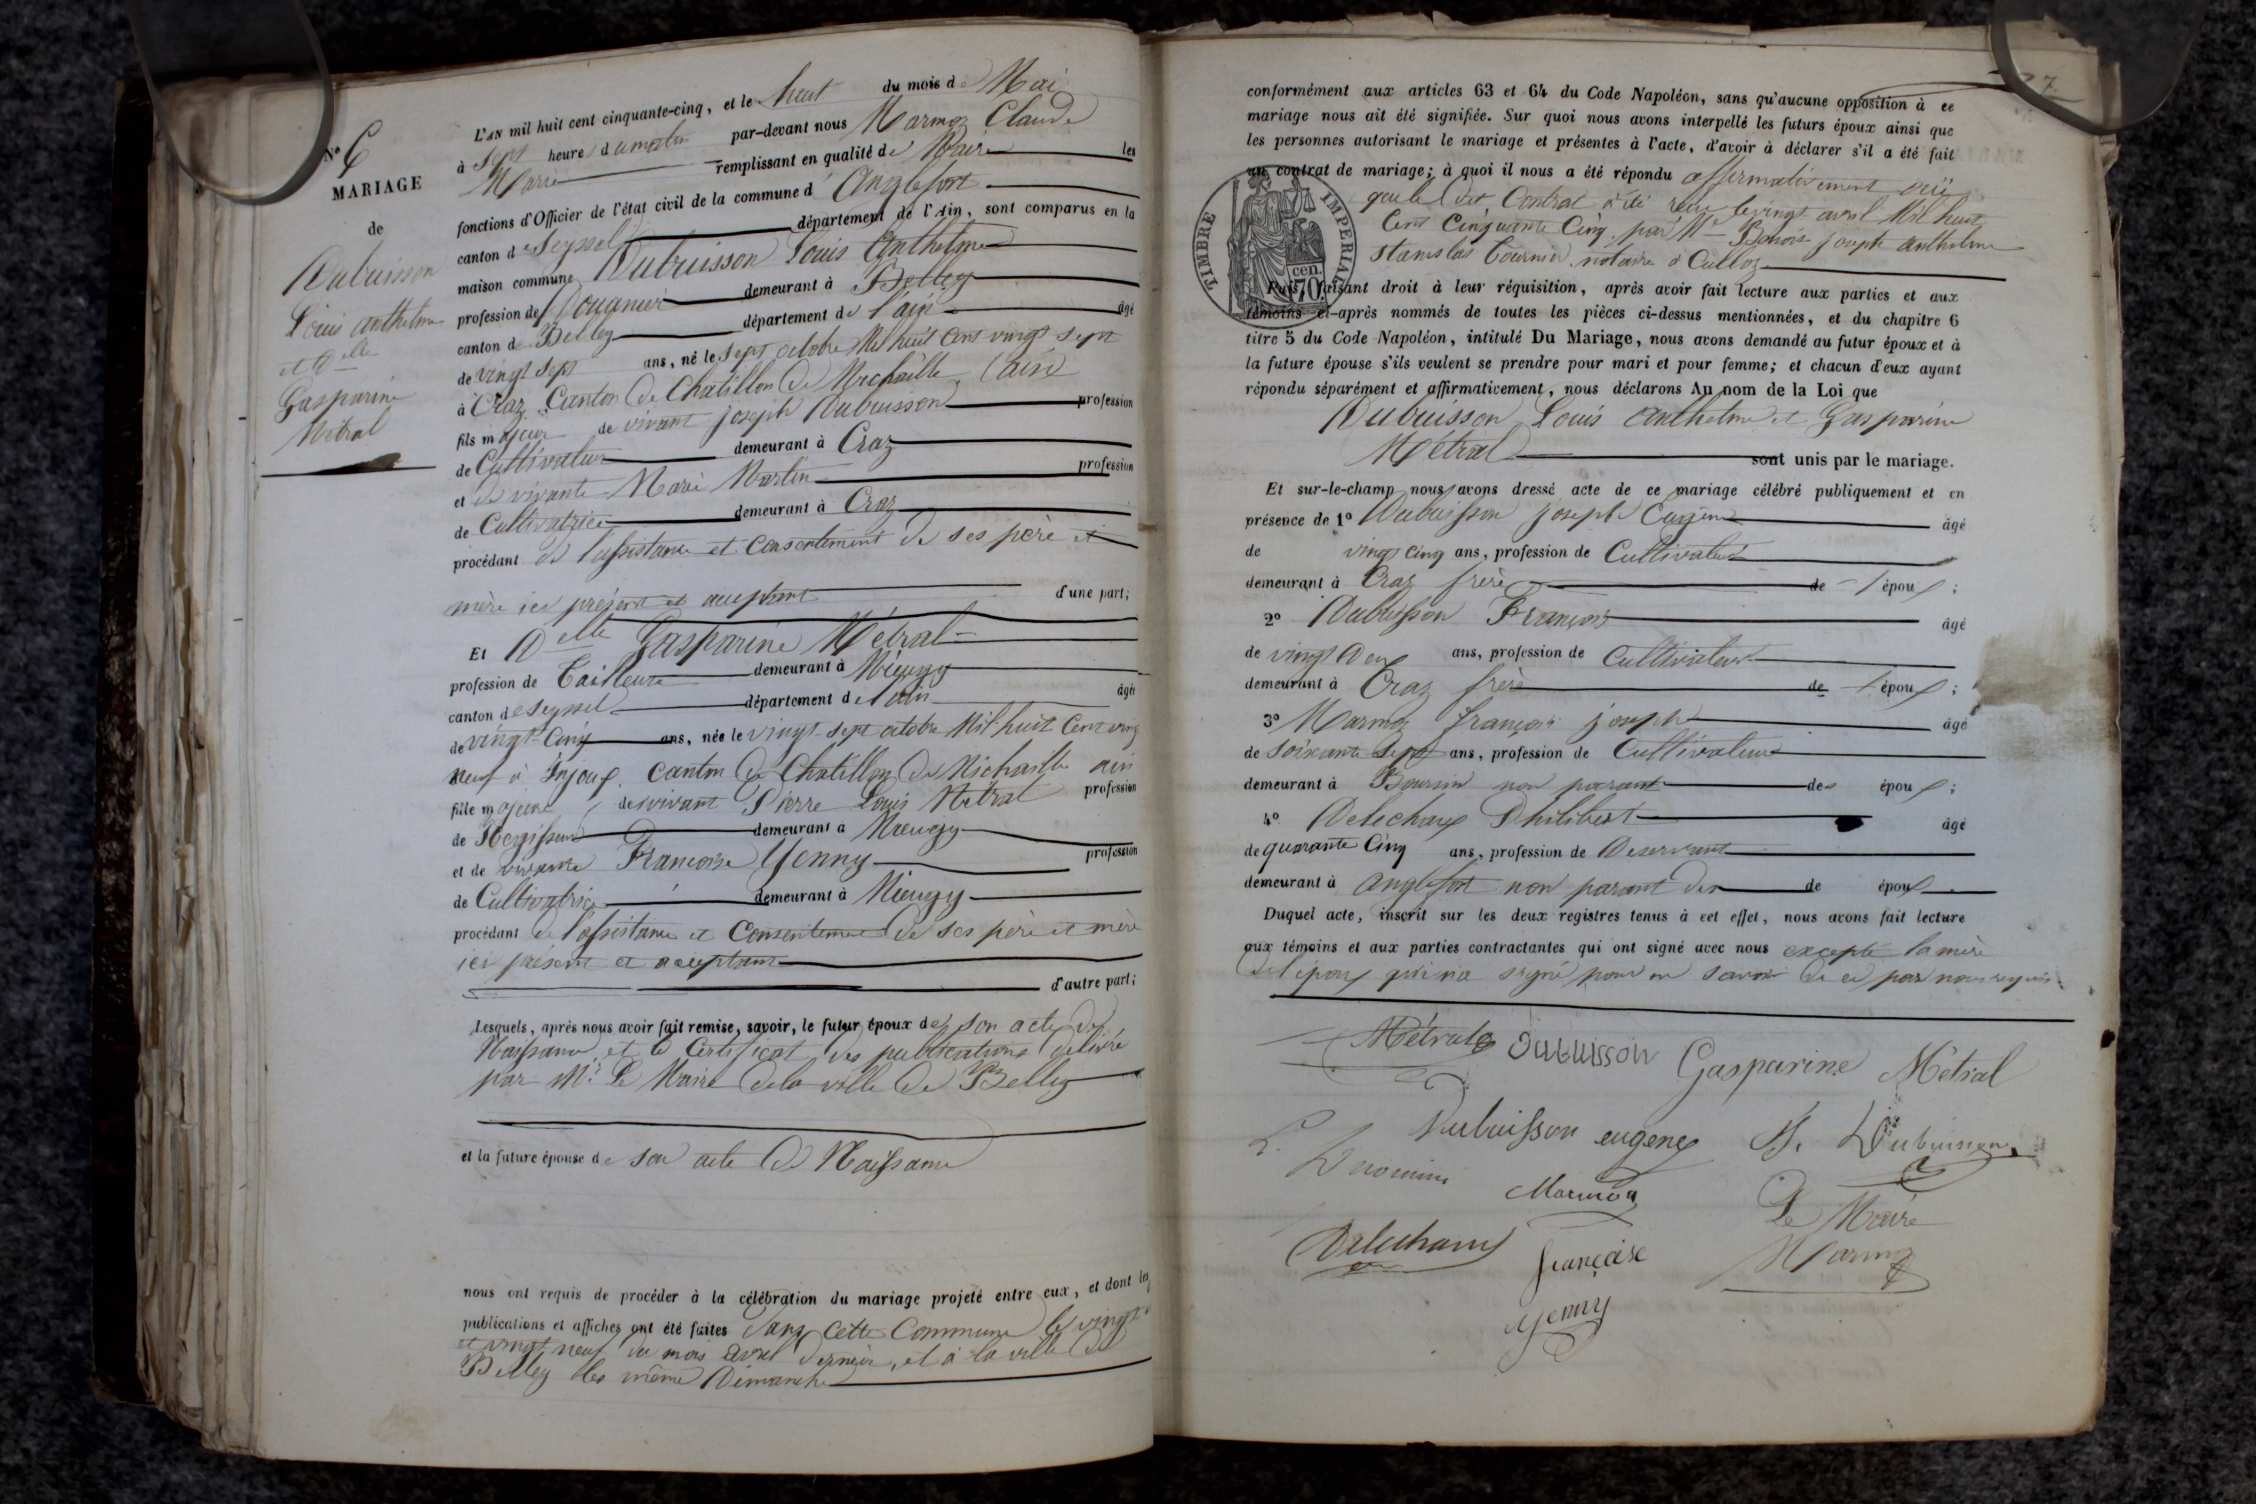 N° 6
MARIAGE
de
Dubuisson
Louis anthelme
et Delle
Gasparine
Métral
L'AN mil huit cent cinquante-cinq, et le huit du mois de Mai
à sept heures du matin par-devant nous Marmoz Claude
Marie remplissant en qualité de Maire les
fonctions d'Officier de l'état civil de la commune d'Anglefort
canton de Seyssel département de l'Ain, sont comparus en la
maison commune Dubuisson Louis Anthelme
profession de Douanier demeurant à Belley
canton de Belley département de l'ain âgé
de vingt sept ans, né le sept octobre Mil huit cent vingt sept
à Craz, Canton de Chatillon de Michaille, (ain)
fils majeur de vivant joseph Dubuisson profession
de Cultivateur demeurant à Craz
et de vivante Marie Martin profession
de Cultivatrice demeurant à Craz
procédant de l'assistance et consentement de ses père et
mère ici présent et acceptant d'une part;
Et Delle Gasparine Métral
profession de Tailleuse demeurant à Mieugy
canton de Seyssel département de l'ain âgée
de vingt-cinq ans, née le vingt sept octobre Mil huit Cent vingt
neuf à Injoux, canton de Chatillon de Michaille ain
fille majeure de vivant Pierre Louis Métral profession
de Régisseur demeurant à Mieugy
et de vivante Françoise Yenny profession
de Cultivatrice demeurant à Mieugy
procédant de l'assistance et Consentement de ses père et mère
ici présent et acceptant
d'autre part;
Lesquels, après nous avoir fait remise, savoir, le futur époux de son acte de
Naissance, et le Certificat des publications délivré
par Mr. Le Maire de la ville de Belley
et la future épouse de son acte de Naissance
nous ont requis de procéder à la célébration du mariage projeté entre eux, et dont les
publications et affiches ont été faites dans cette Commune les vingt
et vingt neuf du mois avril dernier, et à la ville de
Belley les même Dimanche
7.
conformément aux articles 63 et 64 du Code Napoléon, sans qu'aucune opposition à ce
mariage nous ait été signifiée. Sur quoi nous avons interpellé les futurs époux ainsi que
les personnes autorisant le mariage et présentes à l'acte, d'avoir à déclarer s'il a été fait
un contrat de mariage; à quoi il nous a été répondu affirmativement oui
que le dit Contrat a été reçu le vingt avril Mil huit
Cent Cinquante Cinq, par Me joseph anthelme
Stanislas notaire à Culloz
TIMBRE IMPERIAL
70 cen.
Puis, faisant droit à leur réquisition, après avoir fait lecture aux parties et aux
témoins ci-après nommés de toutes les pièces ci-dessus mentionnées, et du chapitre 6
titre 5 du Code Napoléon, intitulé Du Mariage, nous avons demandé au futur époux et à
la future épouse s'ils veulent se prendre pour mari et pour femme; et chacun d'eux ayant
répondu séparément et affirmativement, nous déclarons Au nom de la Loi que
Dubuisson Louis Anthelme et Gasparine
Métral sont unis par le mariage.
Et sur-le-champ nous avons dressé acte de ce mariage célébré publiquement et en
présence de 1° Dubuisson joseph Eugène âgé
de vingt cinq ans, profession de Cultivateur
demeurant à Craz frère de l'époux;
2° Dubuisson François âgé
de vingt deux ans, profession de Cultivateur
demeurant à Craz frère de l'époux;
3° Marmoz françois joseph âgé
de soixante sept ans, profession de Cultivateur
demeurant à Boursin non parant des époux;
4° Delechaux Philibert âgé
de quarante Cinq ans, profession de Desservant
demeurant à Anglefort non parant des de époux
Duquel acte, inscrit sur les deux registres tenus à cet effet, nous avons fait lecture
aux témoins et aux parties contractantes qui ont signé avec nous excepté la mère
de l'époux qui n'a signé pour ne savoir de ce par nous requis.
Métral Dubuisson Gasparine Métral
Dubuisson eugene Dubuisson
Marmoz Le Maire
Delechaux françoise Marmoz
yenny